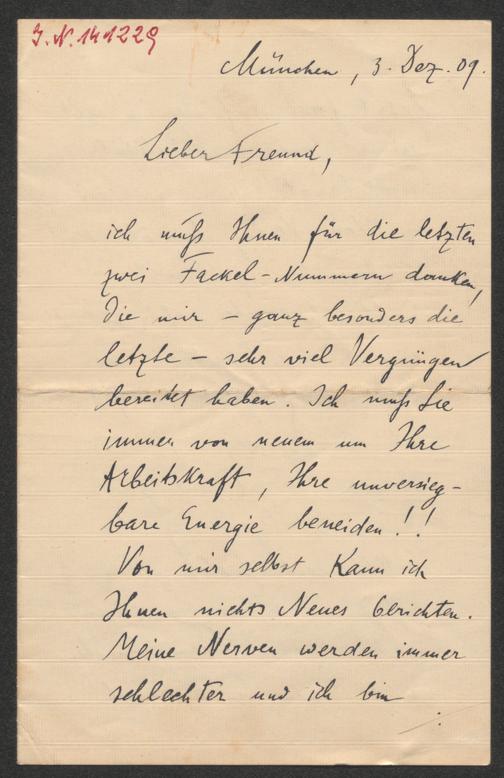 J. N. 141229
München, 3. Dez. 09.
Lieber Freund,
ich muß Ihnen für die letzten
zwei Fackel-Nummern danken,
die mir – ganz besonders die
letzte – sehr viel Vergnügen
bereitet haben. Ich muß Sie
immer von neuem um Ihre
Arbeitskraft, Ihre unversieg-
bare Energie beneiden!!
Von mir selbst kann ich
Ihnen nichts Neues berichten.
Meine Nerven werden immer
schlechter und ich bin